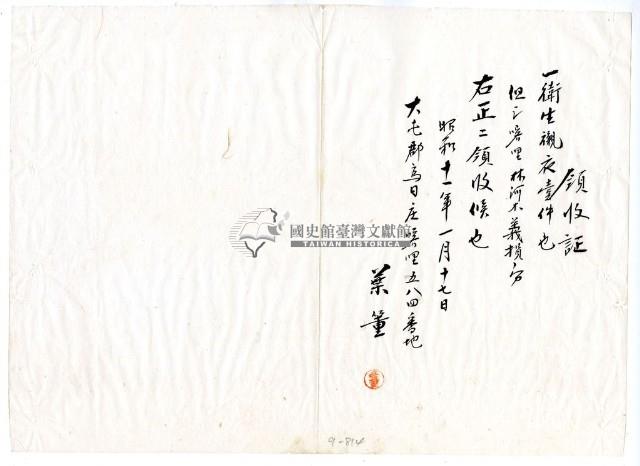 領收証
一衛生襯衣壹件也
但シ喀哩林河木義損分
右正ニ領收候也
昭和十一年一月十七日
大屯郡烏日庄喀哩五八四番地
葉董
國史館臺灣文獻館
TAIWAN HISTORICA
9-814